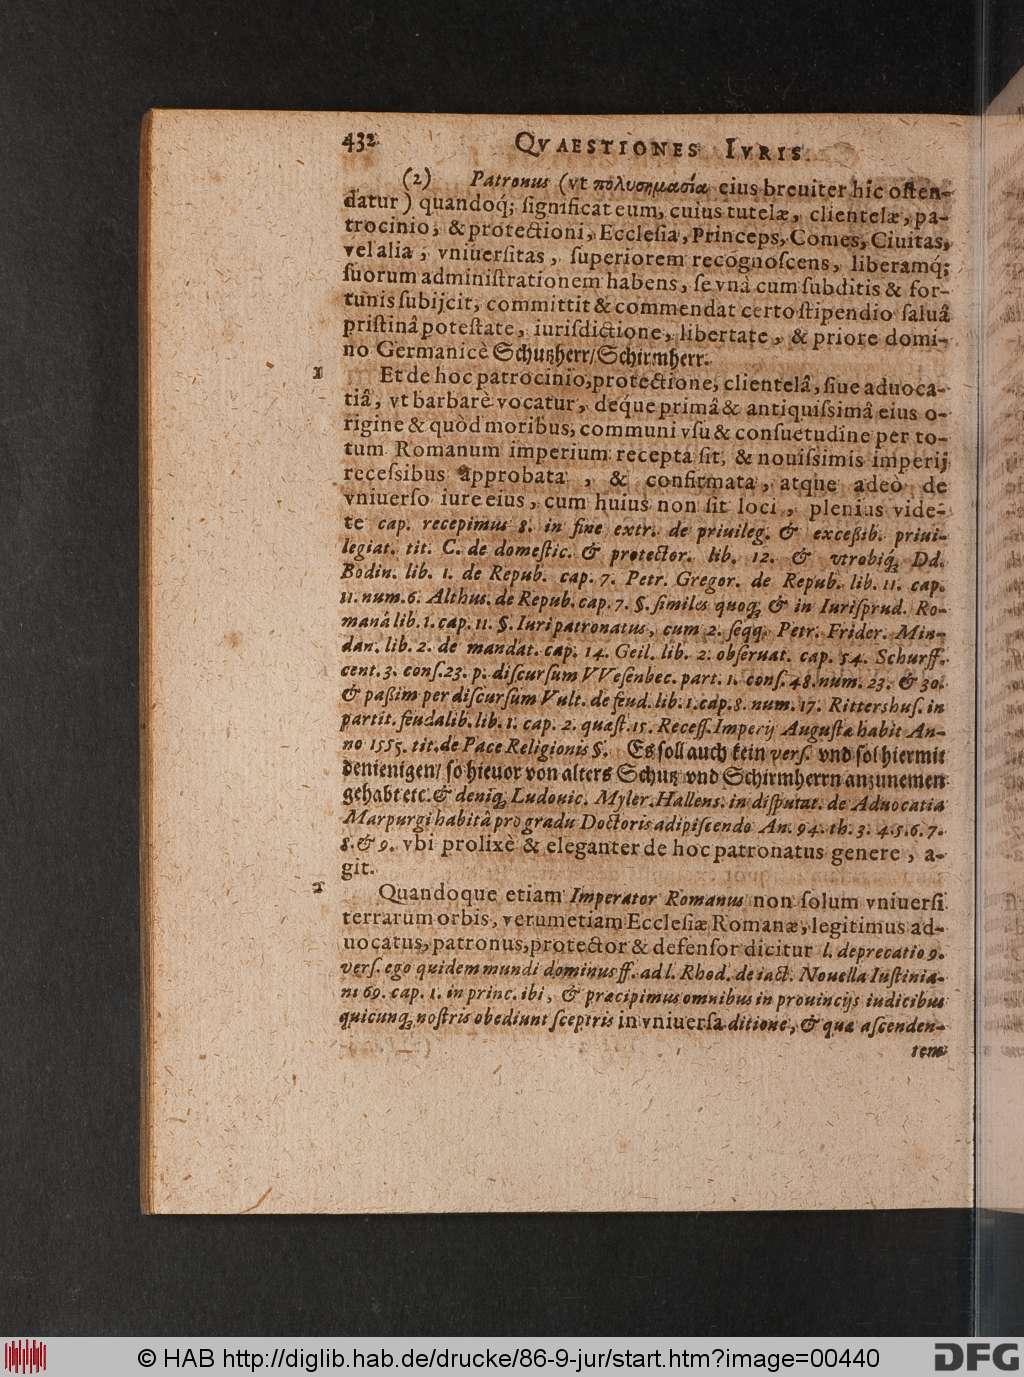 432 QVAESTIONES IVRIS.
(2) Patronus (vt πολυσημασία eius breuiter hîc osten-
datur) quandoq; significat eum, cuius tutelæ, clientelæ, pa-
trocinio, & protectioni, Ecclesia, Princeps, Comes, Ciuitas,
vel alia, vniuersitas, superiorem recognoscens, liberamq;
suorum administrationem habens, se vnà cum subditis & for-
tunis subijcit, committit & commendat certo stipendio saluâ
pristinâ potestate, iurisdictione, libertate, & priore domi-
no Germanicè Schutzherr/Schirmherr.
1 Et de hoc patrocinio, protectione, clientelâ, siue aduoca-
tiâ, vt barbarè vocatur, deque primâ & antiquissimâ eius o-
rigine & quòd moribus, communi vsu & consuetudine per to-
tum Romanum imperium recepta sit, & nouissimis imperij
recessibus approbata, & confirmata, atque adeò de
vniuerso iure eius, cum huius non sit loci, plenius vide-
te cap. recepimus 8. in fine extr. de priuileg. & exceßib. priui-
legiat. tit. C. de domestic. & protector. lib. 12. & vtrobiq; Dd.
Bodin. lib. 1. de Repub. cap. 7. Petr. Gregor. de Repub. lib. 11. cap.
11. num. 6. Althus. de Repub. cap. 7. §. similes quoq; & in Iurisprud. Ro-
manâ lib. 1. cap. 11. §. Iuri patronatus, cum 2. seqq. Petr. Frider. Min-
dan. lib. 2. de mandat. cap. 14. Geil. lib. 2. obseruat. cap. 54. Schurff.
cent. 3. cons. 23. p. discursum VVesenbec. part. 1. cons. 48. num. 23. & 30.
& paßim per discursum Vult. de feud. lib. 1. cap. 8. num. 17. Rittershus. in
partit. feudalib. lib. 1. cap. 2. quæst. 15. Recess. Imperij Augustæ habit. An-
no 1555. tit. de Pace Religionis §. Es soll auch kein vers. vnd sol hiermit
denienigen/ so hieuor von alters Schutz vnd Schirmherrn anzunemen
gehabt etc. & deniq; Ludouic. Myler. Hallens. in disputat. de Aduocatia
Marpurgi habitâ pro gradu Doctoris adipiscendo An. 94. th. 3. 4. 5. 6. 7.
8. & 9. vbi prolixè & eleganter de hoc patronatus genere, a-
git.
2 Quandoque etiam Imperator Romanus non solum vniuersi
terrarum orbis, verum etiam Ecclesiæ Romanæ, legitimus ad-
uocatus, patronus, protector & defensor dicitur l. deprecatio 9.
vers. ego quidem mundi dominus ff. ad l. Rhod. de iact. Nouella Iustinia-
ni 69. cap. 1. in princ. ibi, & præcipimus omnibus in prouincijs iudicibus
quicunq; nostris obediunt sceptris in vniuersa ditione, & qua ascenden-
tem
© HAB http://diglib.hab.de/drucke/86-9-jur/start.htm?image=00440
DFG